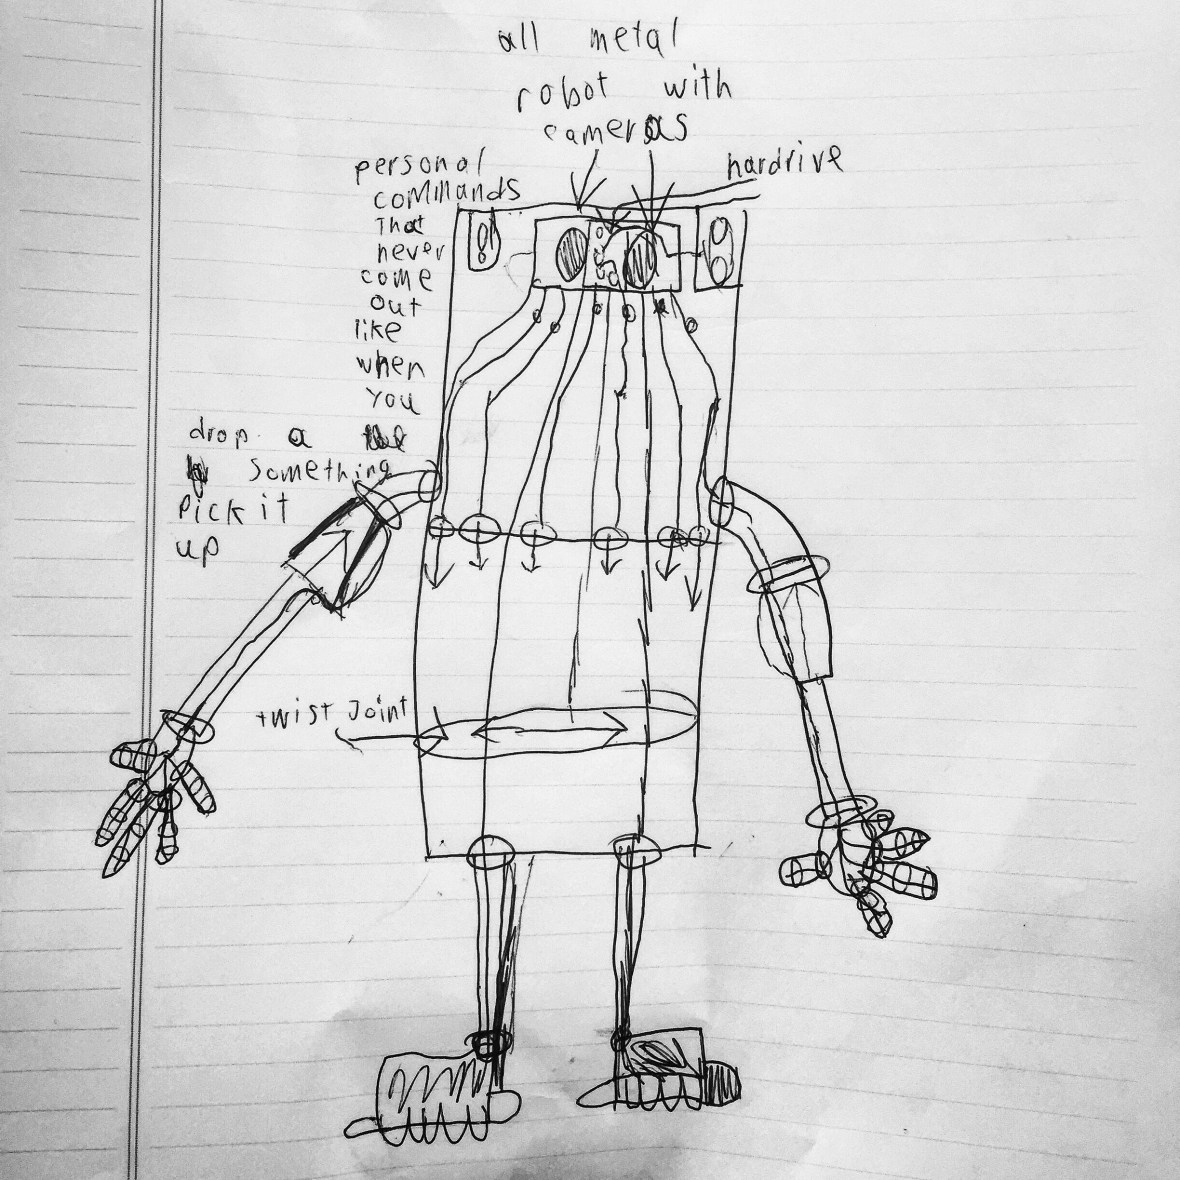 all metal
robot with
cameras
hardrive
personal
commands
That
never
come
out
like
when
you
drop a
something
Pick it
up
twist Joint